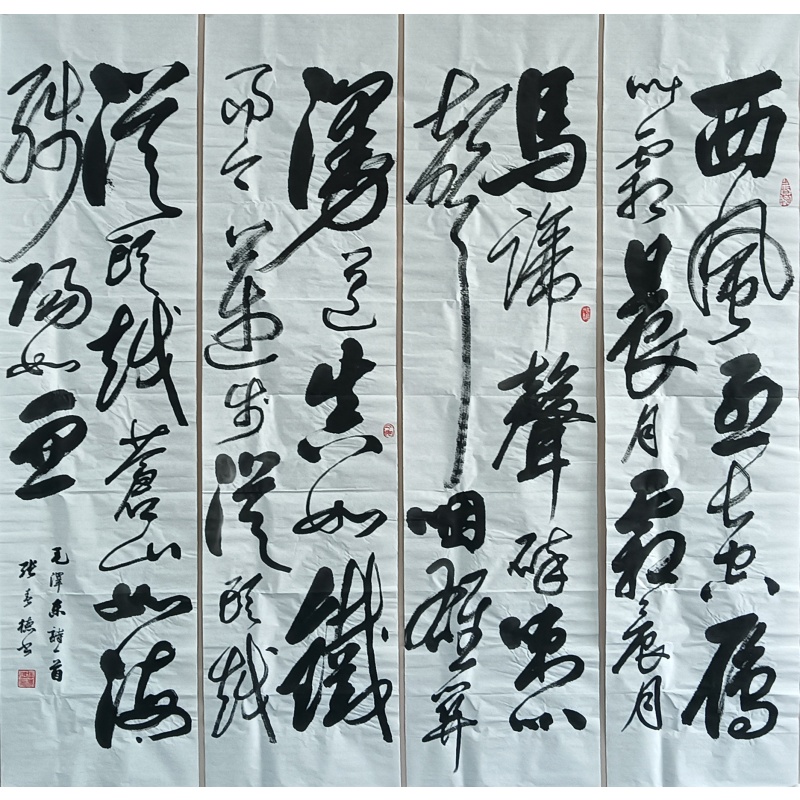 西風烈長空雁
叫霜晨月霜晨月
馬蹄聲碎喇叭
聲咽雄關
漫道真如鐵
而今邁步從頭越
從頭越蒼山如海
殘陽如血
毛澤東詩一首
張春書